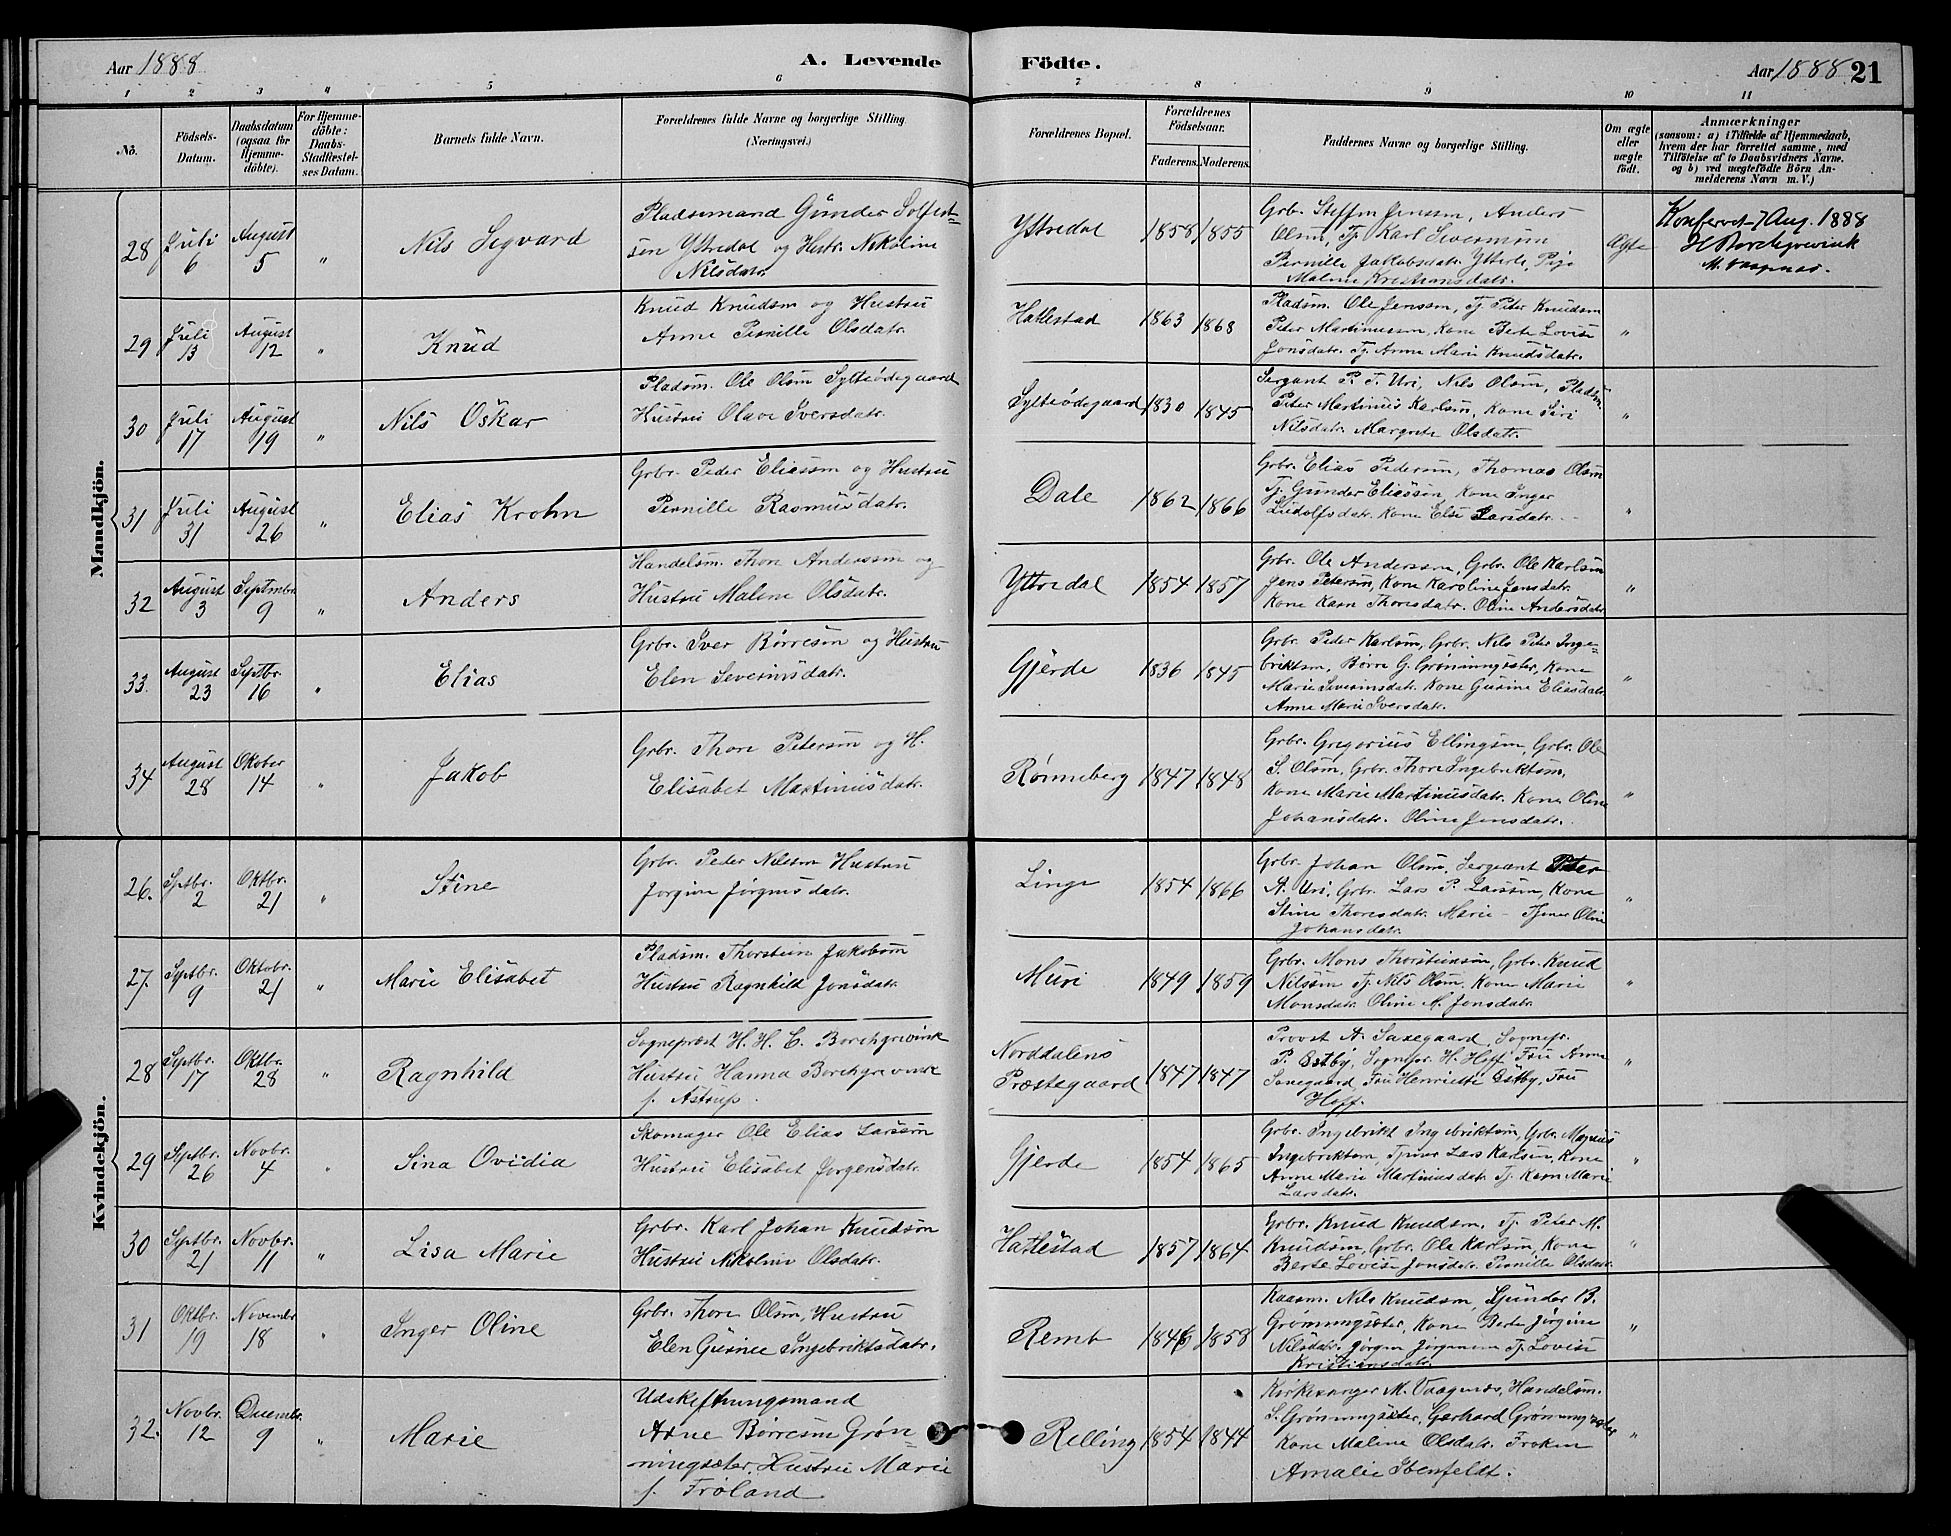 Aar 1888
A. Levende
Födte.
Aar 1888 21
1 2 3 4 5 6 7 8 9 10 11
No.
Födsels-
Datum.
Daabsdatum
(ogsaa for
Hjemme-
döbte).
For Hjemme-
döbte:
Daabs-
Stadfæstel-
ses Datum.
Barnets fulde Navn.
Forældrenes fulde Navne og borgerlige Stilling
(Næringsvei.)
Forældrenes Bopæl.
Forældrenes
Födselsaar.
Faderens. Moderens.
Faddernes Navne og borgerlige Stilling.
Om ægte
eller
uægte
födt.
Anmærkninger
(saasom: a) i Tilfælde af Hjemmedaab,
hvem der har forrettet samme, med
Tilföielse af to Daabsvidners Navne,
og b) ved uægtefödte Börn An-
melderens Navn m. V.)
Mandkjön.
28 Juli 6 August 5 " Nils Segvard
Pladsmand Gunder Solfest-
sen Ystredal og Hustr. Nikoline
Nilsdatr.
Ystredal 1858 1855
Grb. Steffen Jenssen, Anders
Olsen, Tj. Karl Severinsen
Pernille Jakobsdatr. Ytterli, Pige
Malene Kristiansdatr.
Ægte
Konfervt 7 Aug. 1888
H Borchgrevink
M. Vaagenæs.
29 Juli 13 August 12 " Knud
Knud Knudsen og Hustru
Anne Pernille Olsdatr.
Hatlestad 1863 1868
Pladsm. Ole Jenssen, Tj. Peter Knudsen
Peter Martinussen, Kone Berte Lovise
Jonsdatr. Tj. Anne Marie Knudsdatr.
"
30 Juli 17 August 19 " Nils Oskar
Pladsm. Ole Olsen Sylteødegaard
Hustru Olave Iversdatr.
Sylteødegaard 1830 1845
Sergant P. T. Uri, Nils Olsen, Pladsm.
Peter Martinus Karlsen, Kone Siri
Nilsdatr. Margrete Olsdatr.
"
31 Juli 31 August 26 " Elias Krohn
Grbr. Peder Eliassen og Hustru
Pernille Rasmusdatr.
Dale 1862 1866
Grbr. Elias Pedersen, Thomas Olsen
Tj. Gunder Eliassen, Kone Inger
Ludolfsdatr. Kone Else Larsdatr.
"
32 August 3 Septmber 9 " Anders
Handelsm. Thore Anderssen og
Hustru Malene Olsdatr.
Yttredal 1854 1857
Grbr. Ole Anderssen, Grbr. Ole Karlsen
Jens Petersen, Kone Karoline Jensdatr.
Kone Karn Thoresdatr. Oline Andersdatr.
"
33. August 23 Septbr. 16 " Elias
Grbr. Iver Børresen og Hustru
Elen Severinsdatr.
Gjerde 1836 1845
Grbr. Peder Karlsen, Grbr. Nils Peter Inge-
briktsen, Børre G. Grønningsæter, Kone
Marie Severinsdatr. Kone Gurine Eliasdatr.
Anne Marie Iversdatr.
"
34 August 28 Okober 14 " Jakob
Grbr. Thore Petersen og H.
Elisabet Martinusdatr.
Rønneberg 1847 1848
Grbr. Gregorius Ellingsen, Grbr. Ole
S. Olsen, Grbr. Thore Ingebriktsen,
Kone Marie Martinusdatr. Kone Oline
Johansdatr. Oline Jensdatr.
"
Kvindekjön.
26. Septbr. 2 Oktbr. 21 " Stine
Grbr. Peder Nilssen Hustru
Jorgine Jørgensdatr.
Linge 1854 1866
Grbr. Johan Olsen, Sergeant Peter
A. Uri, Grbr. Lars P. Larssen, Kone
Stine Thoresdatr. Marie - Tjener Oline
Johansdatr.
"
27. Septbr. 9 Oktobr. 21 " Marie Elisabet
Pladsm. Thorstein Jakobsen
Hustru Ragnhild Jonsdatr.
Muri 1849 1859
Grbr. Mons Thorsteinsen, Grbr. Knud
Nilssen Tj. Nils Olsen. Kone Marie
Monsdatr. Oline M. Jonsdatr.
"
28 Septbr. 17 Oktbr. 28 " Ragnhild
Sogneprest H. H. C. Borchgrevink
Hustru Hanna Borchgrevink
f. Astrup.
Norddalens
Præstegaard 1847 1847
Provst A. Saxegaard, Sognepr.
P. Østby, Sognepr. H. Hoff, Fru Anna
Saxegaard, Fru Henriette Østby, Fru
Hoff.
"
29 Septbr. 26 Novbr. 4 " Sina Ovidia
Skomager Ole Elias Larssen
Hustru Elisabet Jorgensdatr.
Gjerde 1854 1865
Grbr. Ingebrikt Ingebriktsen, Grbr. Magnus
Ingebriktsen Tjener Lars Karlsen, Kone
Anne Marie Martinusdatr. Tj. Karn Marie
Larsdatr.
"
30 Septbr. 21 Novbr. 11 " Lisa Marie
Grbr. Karl Johan Knudsen
Hustru Nikoline Olsdatr.
Hatlestad 1857 1864
Grbr. Knud Knudsen, Tj. Peter M.
Knudsen, Grbr. Ole Karlsen, Kone
Berte Lovise Jonsdatr. Pernille Olsdatr.
"
31 Oktbr. 19 November 18 " Inger Oline
Grbr. Thore Olsen, Hustru
Elen Gurine Ingebriktsdatr.
Remb 1846 1858
Kaasm. Nils Knudsen, Gunder B.
Grønningsæter, Kone Berte Jørgine
Nilsdatr. Jørgen Jørgensen Tj. Lovise
Kristiansdatr.
"
32. Novbr. 12 Decembr. 9 " Marie
Udskiftningsmand
Arne Børresen Grøn-
ningsæter, Hustru Marie
f. Frøland
Relling 1854 1844
Kirkesanger M. Vaagenæs, Handelsm.
S. Grønningsæter, Gerhard Grønningsæter
Kone Malene Olsdatr. Frøken
Amalie Ibenfeldt.
"